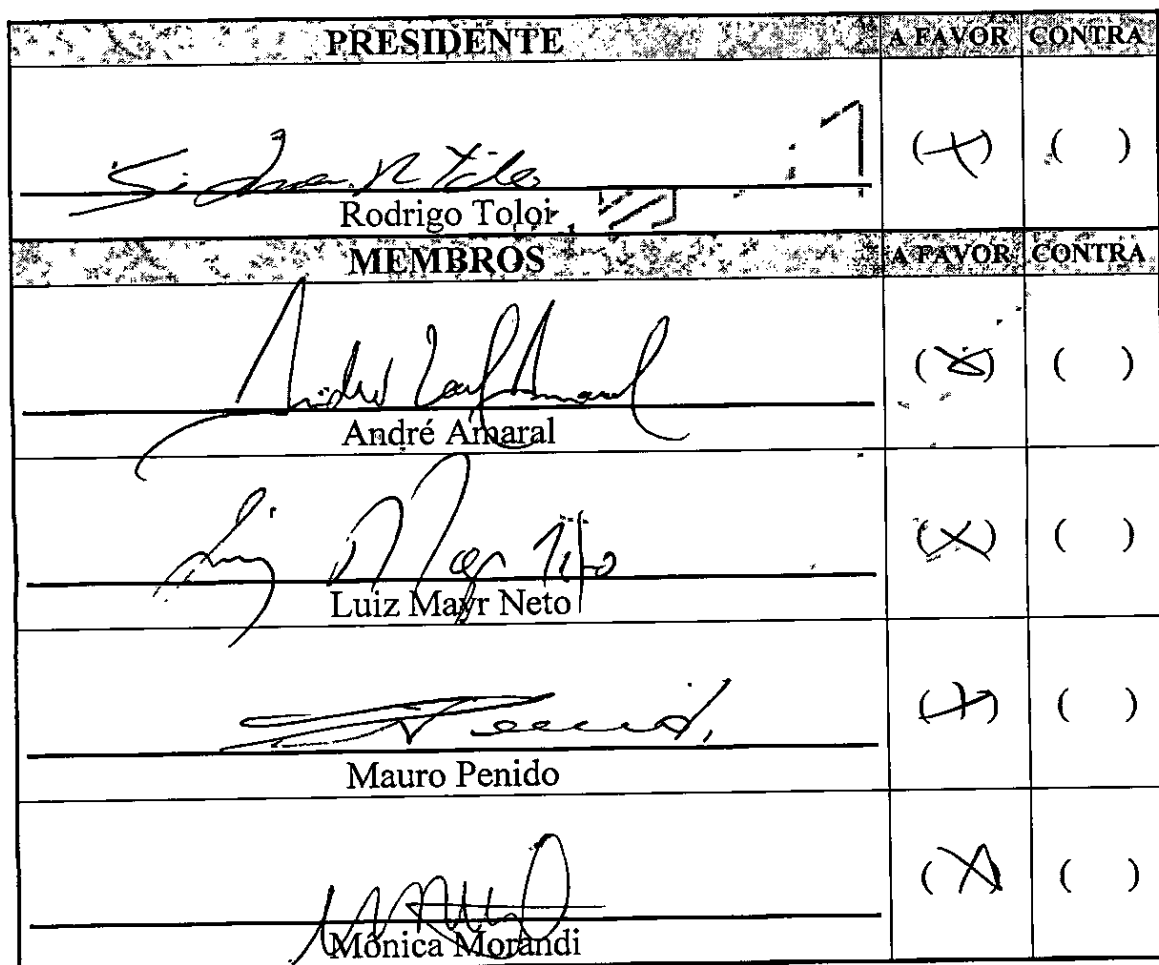 PRESIDENTE A FAVOR CONTRA
(X) ( )
Rodrigo Toloi
MEMBROS A FAVOR CONTRA
(X) ( )
André Amaral
(X) ( )
Luiz Mayr Neto
(X) ( )
Mauro Penido
(X) ( )
Mônica Morandi